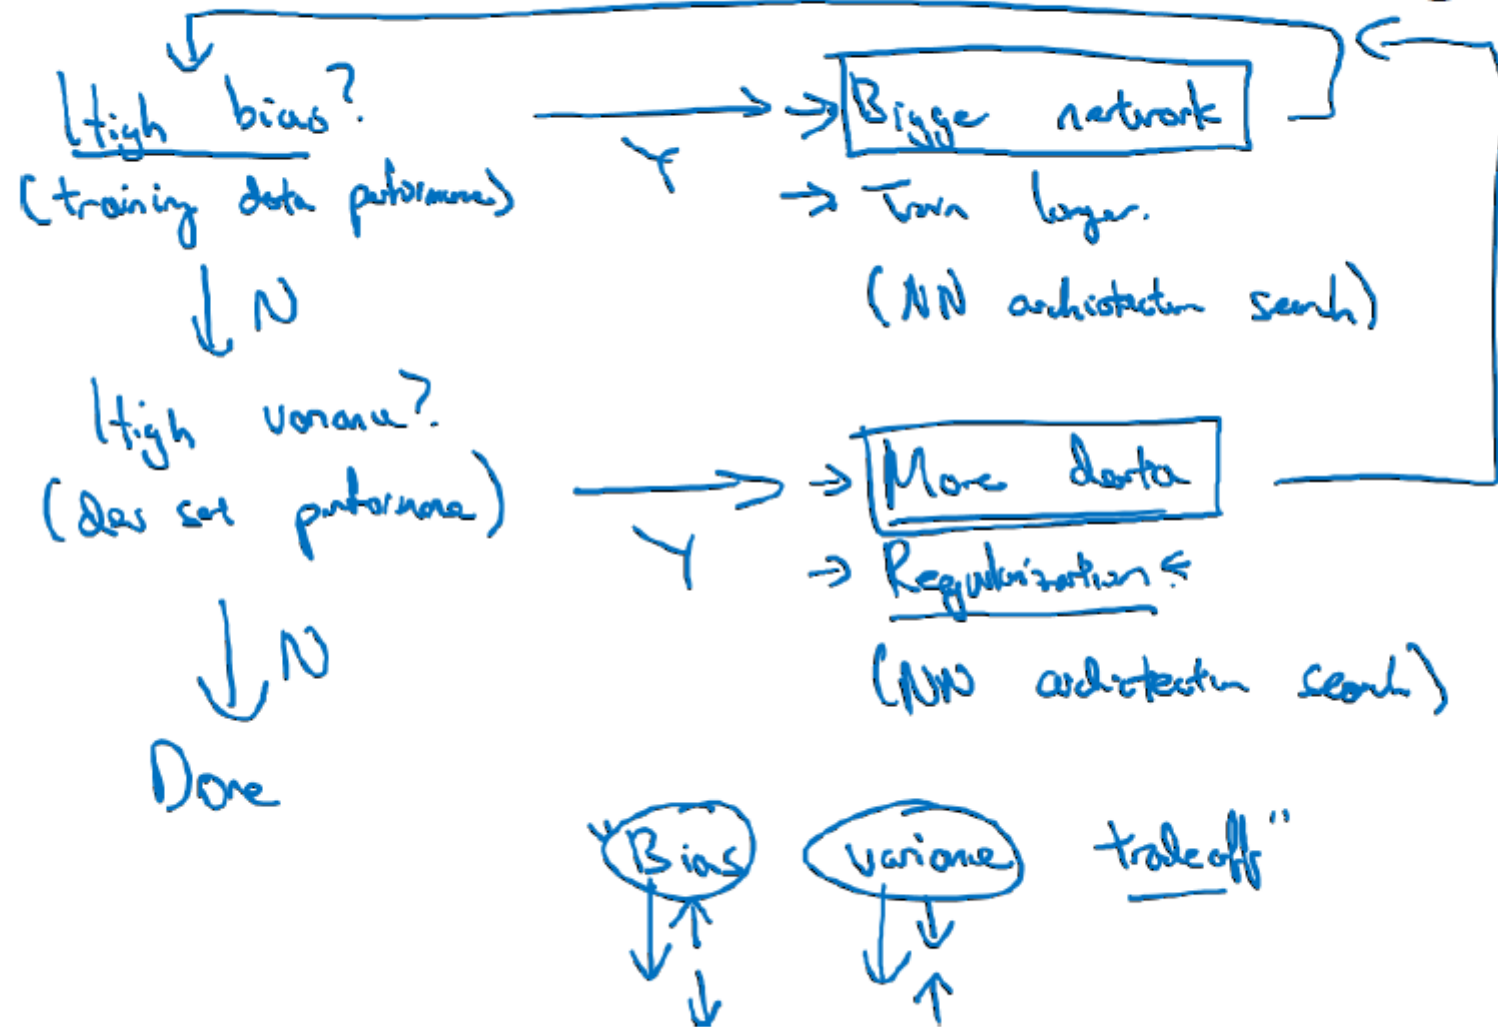 High bias?
(training data performance)
Y
→ Bigge network
→ Train longer.
(NN architecture search)
N
High variance?
(dev set performance)
Y
→ More data
→ Regularization
(NN architecture search)
N
Done
"Bias variance tradeoff"